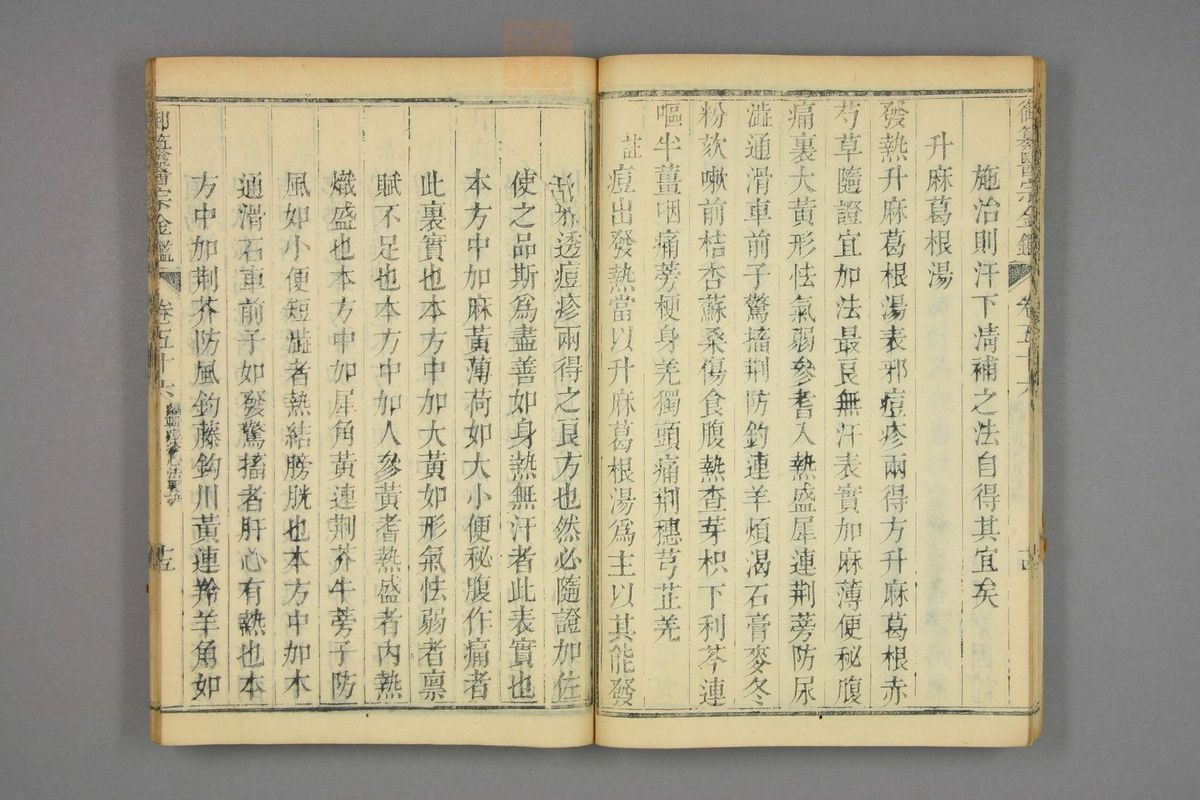 御纂醫宗金鑑 卷五十六 十四
施治則汗下清補之法自得其宜矣
升麻葛根湯
發熱升麻葛根湯表邪痘疹兩得方升麻葛根赤
芍草隨證宜加法最良無汗表實加麻薄便秘腹
痛裏大黃形怯氣弱參耆入熱盛犀連荆蒡防尿
澁通滑車前子驚搐荆防鈎連羊煩渴石膏麥冬
粉欬嗽前桔杏蘇桑傷食腹熱查芽枳下利芩連
嘔半薑咽痛蒡梗身羌獨頭痛荆穗芎芷羌
註痘出發熱當以升麻葛根湯爲主以其能發
透痘疹兩得之良方也然必隨證加佐
使之品斯爲盡善如身熱無汗者此表實也
本方中加麻黃薄荷如大小便秘腹作痛者
此裏實也本方中加大黃如形氣怯弱者禀
賦不足也本方中加人參黃耆熱盛者內熱
熾盛也本方中加犀角黃連荆芥牛蒡子防
風如小便短澁者熱結膀胱也本方中加木
通滑石車前子如發驚搐者肝心有熱也本
方中加荆芥防風鈎藤鈎川黃連羚羊角如
御纂醫宗金鑑 卷五十六 編輯痘疹心法要訣 十五